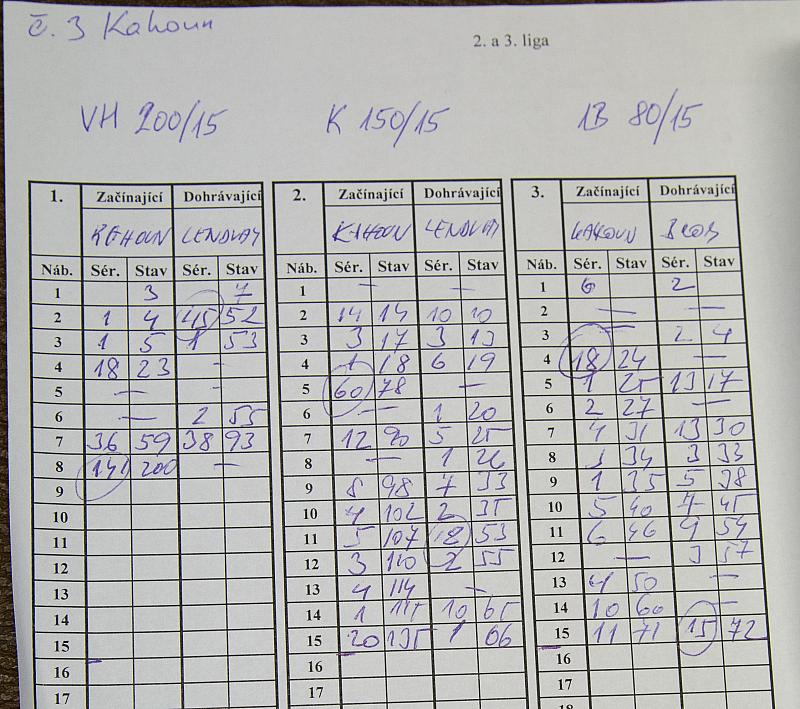 č. 3 Kahoun
2. a 3. liga
VH 200/15 K 150/15 1B 80/15
1. Začínající Dohrávající 2. Začínající Dohrávající 3. Začínající Dohrávající
KAHOUN LENDVAY KAHOUN LENDVAY KAHOUN
Náb. Sér. Stav Sér. Stav Náb. Sér. Stav Sér. Stav Náb. Sér. Stav Sér. Stav
1 3 7 1 — — 1 6 2
2 1 4 45 52 2 14 14 10 10 2 — —
3 1 5 1 53 3 3 17 3 13 3 — 2 4
4 18 23 — 4 1 18 6 19 4 18 24 —
5 — 5 60 78 — 5 1 25 13 17
6 — 2 55 6 — 1 20 6 2 27 —
7 36 59 38 93 7 12 90 5 25 7 4 31 13 30
8 141 200 — 8 — 1 26 8 3 34 3 33
9 9 8 98 7 33 9 1 35 5 38
10 10 4 102 2 35 10 5 40 7 45
11 11 5 107 18 53 11 6 46 9 54
12 12 3 110 2 55 12 — 3 57
13 13 4 114 — 13 4 50 —
14 14 1 115 10 65 14 10 60 —
15 15 20 135 1 66 15 11 71 15 72
16 16 16
17 17 17
18